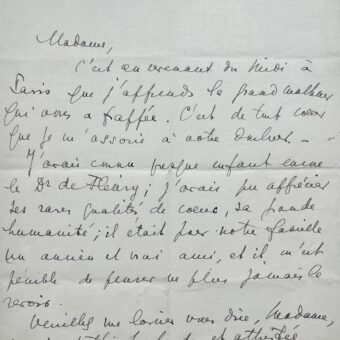 Madame,
C'est en revenant du Midi à
Paris que j'apprends le grand malheur
qui vous a frappée. C'est de tout coeur
que je m'associe à votre douleur.
J'avais connu presque enfant encore
le Dr de Fleury; j'avais pu apprécier
ses rares qualités de coeur, sa grande
humanité; il était pour notre famille
un ancien et vrai ami, et il m'est
pénible de penser ne plus jamais le
revoir.
Veuillez me laisser vous dire, Madame,
et attristée